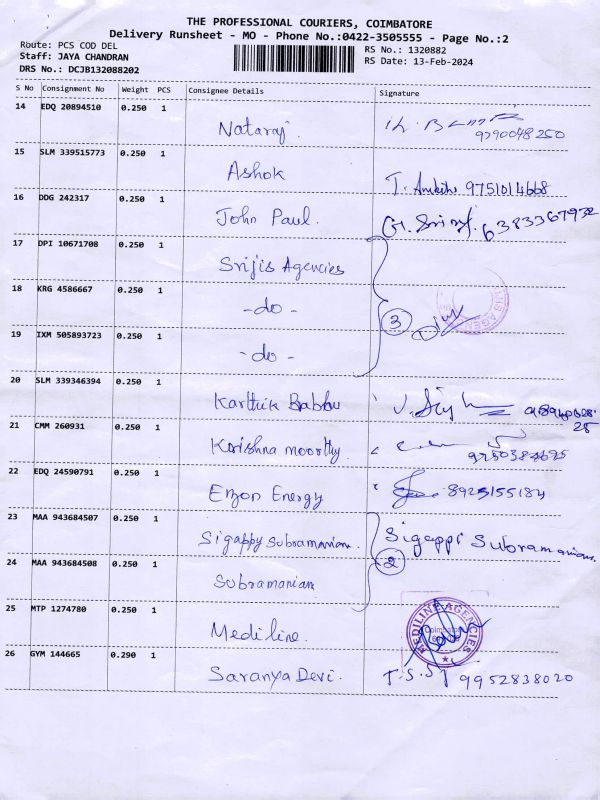 THE PROFESSIONAL COURIERS, COIMBATORE
Delivery Runsheet - MO - Phone No.:0422-3505555 - Page No.:2
Route: PCS COD DEL
RS No.: 1320882
Staff: JAYA CHANDRAN
RS Date: 13-Feb-2024
DRS No.: DCJB132088202
S No Consignment No Weight PCS Consignee Details Signature
14 EDQ 20894510 0.250 1
Nataraj.
9790048250
15 SLM 339515773 0.250 1
Ashok
T. 9751014668
16 DDG 242317 0.250 1
John Paul.
6383367932
17 DPI 10671708 0.250 1
Srijis Agencies
18 KRG 4586667 0.250 1
-do-
3
19 IXM 505893723 0.250 1
-do-
20 SLM 339346394 0.250 1
Karthik Babbu
21 CMM 260931 0.250 1
Krishna moorthy
22 EDQ 24590791 0.250 1
Enzon Energy
23 MAA 943684507 0.250 1
Sigappy Subramanian.
Sigappi Subramanian.
24 MAA 943684508 0.250 1
2
Subramanian
25 MTP 1274780 0.250 1
Mediline.
MEDILINE AGENCIES
26 GYM 144665 0.290 1
Saranya Devi.
T.S.S 9952838020